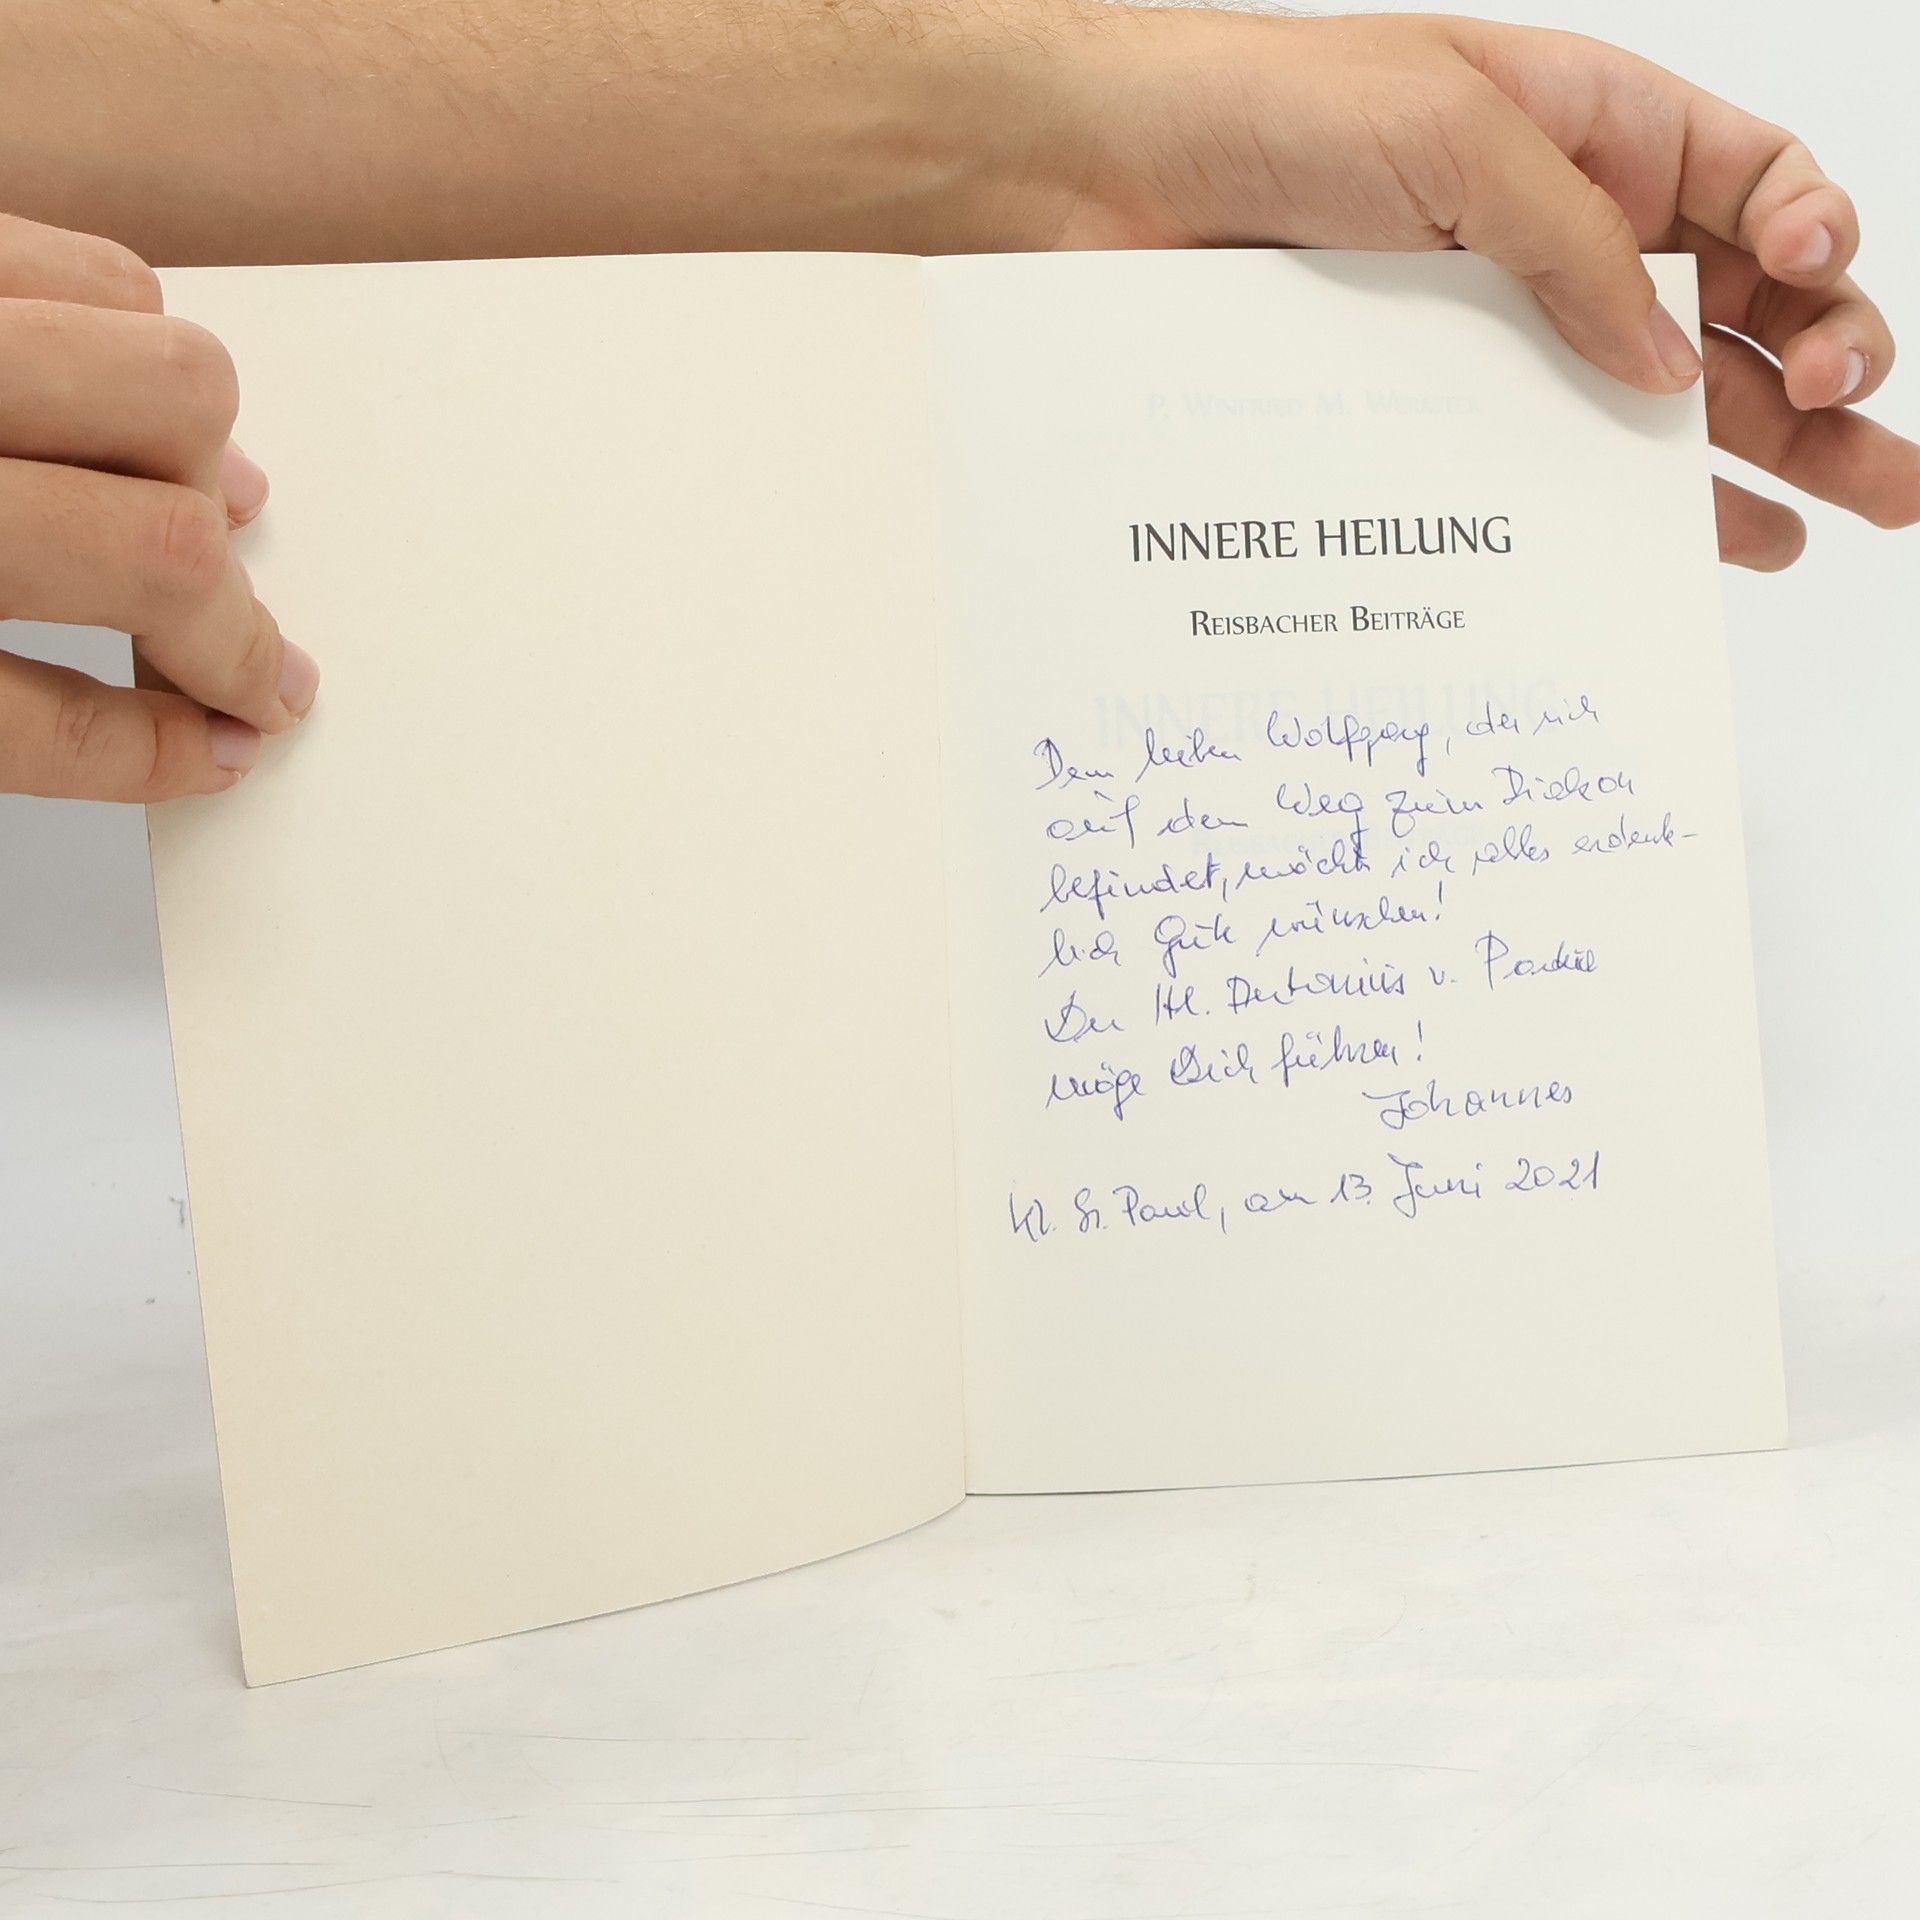 P. Winfried M. Wermter
INNERE HEILUNG
Reisbacher Beiträge
INNERE HEILUNG
Dem lieben Wolfgang, der sich
auf dem Weg zum Diakon
befindet, möcht ich alles erdenk-
lich Gute wünschen!
Der Hl. Antonius v. Padua
möge Dich führen!
Johannes
Kl. St. Paul, am 13. Juni 2021